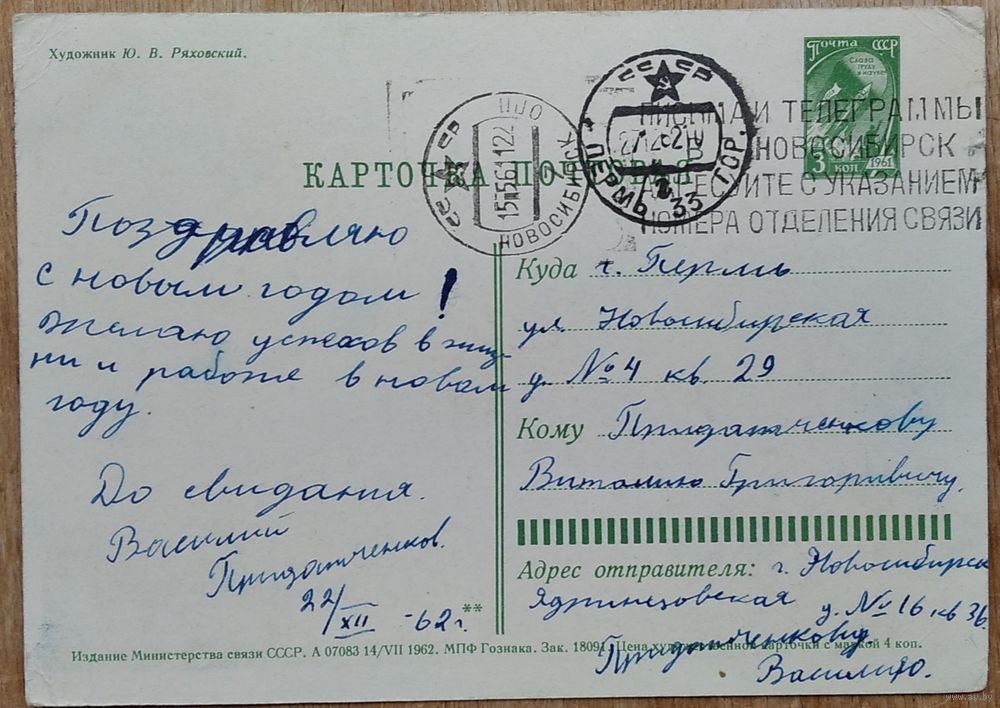 Художник Ю. В. Ряховский.
Почта СССР
СЛАВА
ТРУДУ
И НАУКЕ
3 коп.
1961
КАРТОЧКА ПОЧТОВАЯ
СССР
НОВОСИБИРСК
СССР
ПЕРМЬ 33 ГОР.
ПИСЬМА И ТЕЛЕГРАММЫ
В НОВОСИБИРСК
АДРЕСУЙТЕ С УКАЗАНИЕМ
НОМЕРА ОТДЕЛЕНИЯ СВЯЗИ
Поздравляю
с новым годом!
Желаю успехов в жиз-
ни и работе в новом
году.
До свидания.
Василий
Придатченков.
22/XII -62 г.
**
Куда г. Пермь
ул. Новосибирская
д. № 4 кв. 29
Кому Придатченкову
Виталию Григорьевичу.
Адрес отправителя: г. Новосибирск
Ядринцовская д. № 16 кв 36.
Придатченкову
Василию.
Издание Министерства связи СССР. А 07083 14/VII 1962. МПФ Гознака. Зак. 18091. Цена художественной карточки с маркой 4 коп.